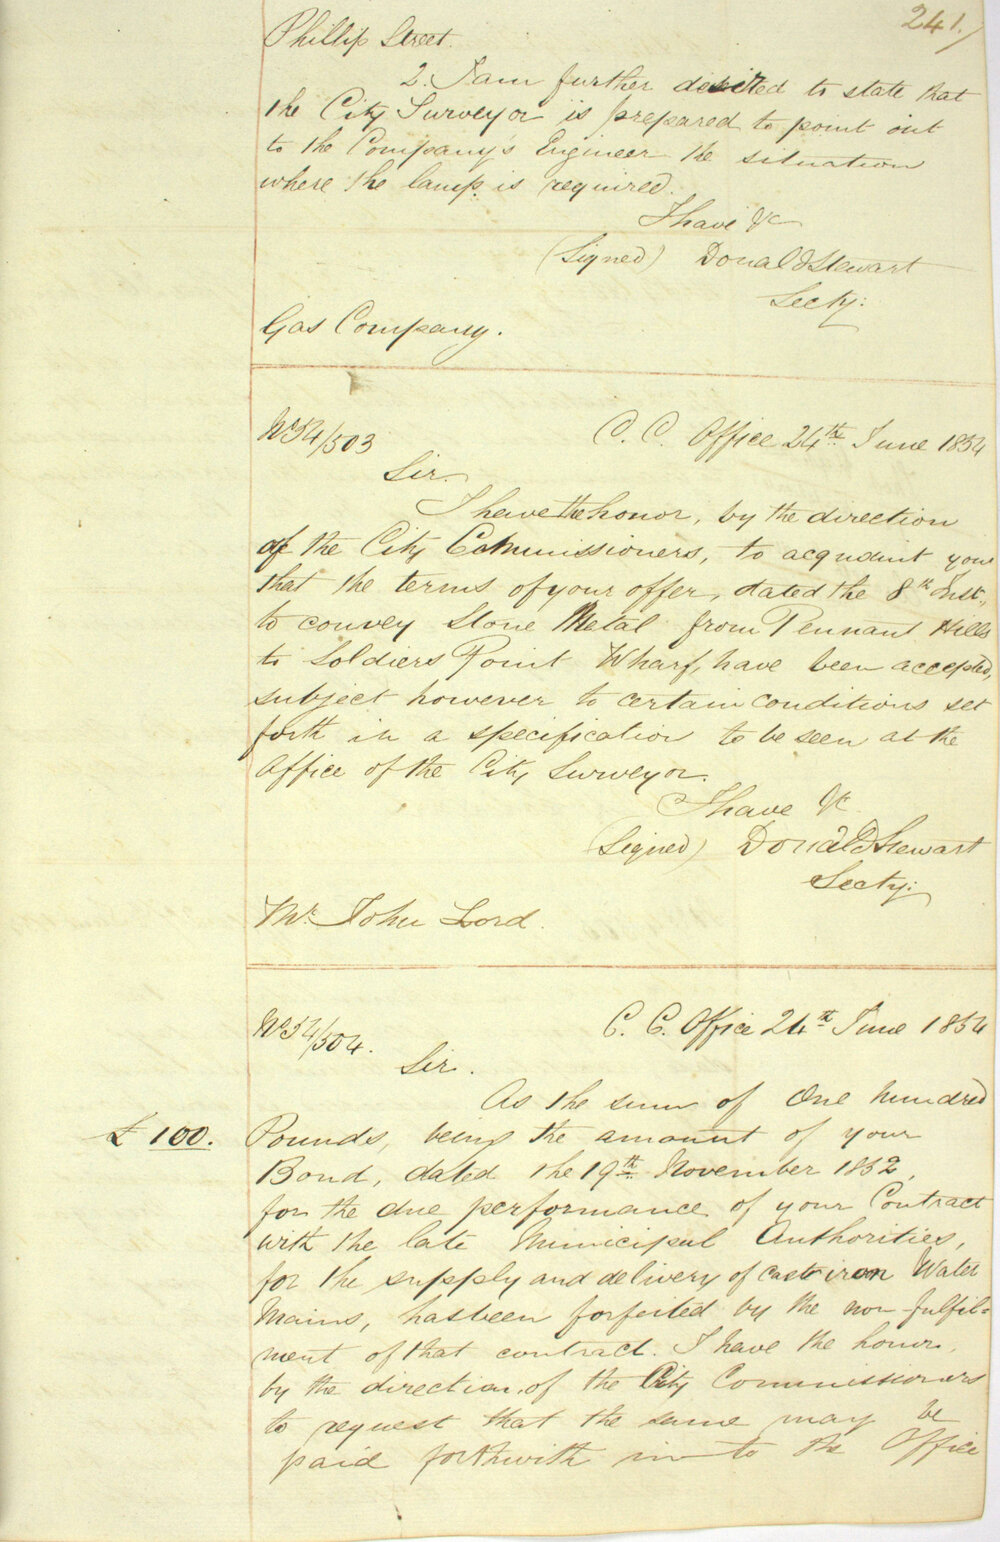 241.
Phillip Street.
2. I am further desired to state that
the City Surveyor is prepared to point out
to the Company's Engineer the situation
where the lamp is required.
I have &c
(Signed) Donald Stewart
Secty:
Gas Company.
No 54/503
C. C. Office 24th June 1854
Sir.
I have the honor, by the direction
of the City Commissioners, to acquaint you
that the terms of your offer, dated the 8th Inst.,
to convey Stone Metal from Pennant Hills
to Soldiers Point Wharf, have been accepted,
subject however to certain conditions set
forth in a specification to be seen at the
Office of the City Surveyor.
I have &c
(Signed) Donald Stewart
Secty:
Mr. John Lord.
No 54/504.
C. C. Office 24th June 1854
Sir.
As the sum of One hundred
£100. Pounds, being the amount of your
Bond, dated the 19th November 1852,
for the due performance of your Contract
with the late Municipal Authorities,
for the supply and delivery of cast iron Water
Mains, has been forfeited by the non-fulfil=
ment of that contract. I have the honor,
by the direction of the City Commissioners
to request that the same may be
paid forthwith in to the Office